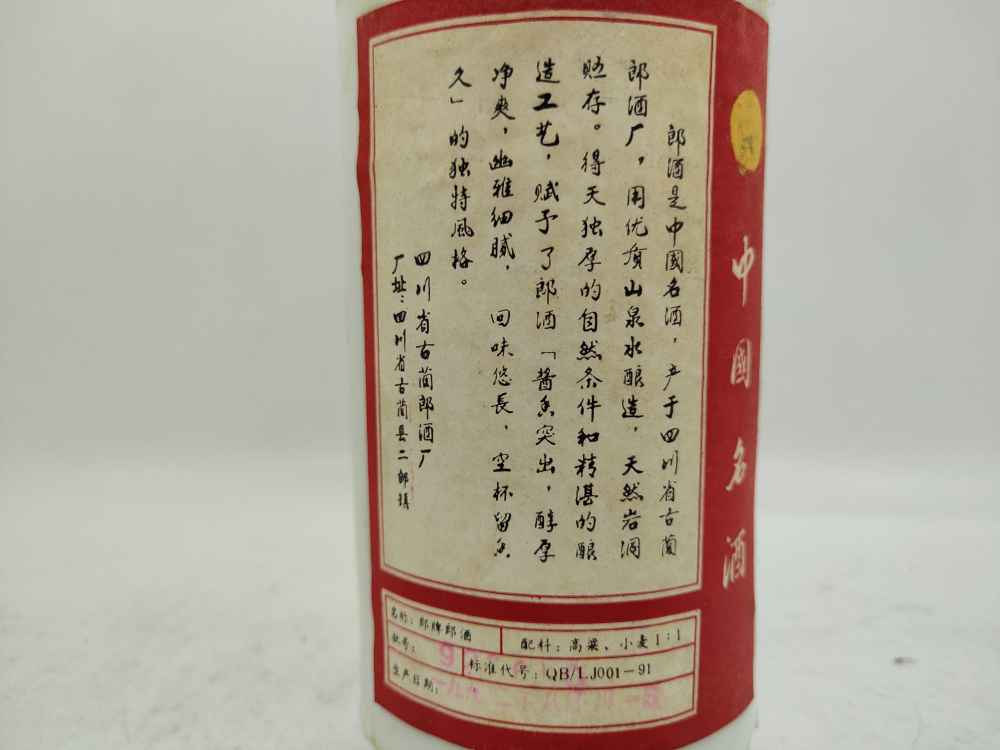 郎酒是中國名酒，产于四川省古蔺
郎酒厂，用优質山泉水酿造，天然岩洞
贮存。得天独厚的自然条件和精湛的酿
造工艺，赋予了郎酒「酱香突出，醇厚
净爽，幽雅细腻，回味悠長，空杯留香
久」的独特風格。
四川省古蔺郎酒厂
厂址：四川省古蔺县二郎镇
中國名酒
名称：郎牌郎酒
配料：高粱、小麦1:1
批号：
标准代号：QB/LJ001-91
生产日期：